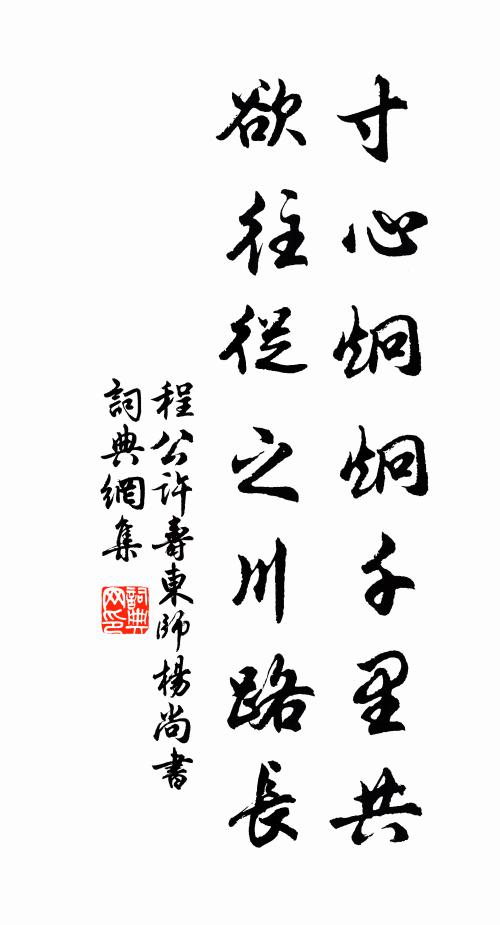 寸心炯炯千里共
欲往從之川路長
程公許壽東師楊尚書
詞典網集
詞典
网印